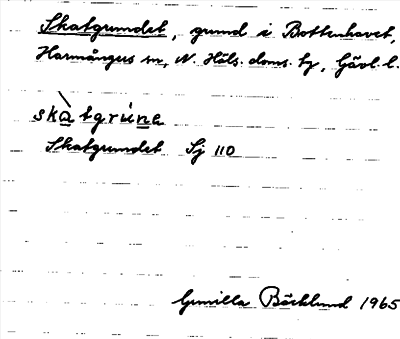 Skatgrundet, grund i Bottenhavet,
Harmångers sn, N. Häls. doms. tg, Gävl. l.
skatgrúne
Skatgrundet Sj 110
Gunilla Bäcklund 1965